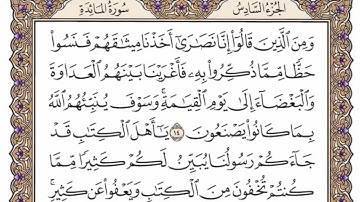 الجزء السادس سورة المائدة
وَمِنَ ٱلَّذِينَ قَالُوٓا۟ إِنَّا نَصَـٰرَىٰٓ أَخَذْنَا مِيثَـٰقَهُمْ فَنَسُوا۟
حَظًّا مِّمَّا ذُكِّرُوا۟ بِهِۦ فَأَغْرَيْنَا بَيْنَهُمُ ٱلْعَدَاوَةَ
وَٱلْبَغْضَآءَ إِلَىٰ يَوْمِ ٱلْقِيَـٰمَةِ ۚ وَسَوْفَ يُنَبِّئُهُمُ ٱللَّهُ
بِمَا كَانُوا۟ يَصْنَعُونَ ١٤ يَـٰٓأَهْلَ ٱلْكِتَـٰبِ قَدْ
جَآءَكُمْ رَسُولُنَا يُبَيِّنُ لَكُمْ كَثِيرًا مِّمَّا
كُنتُمْ تُخْفُونَ مِنَ ٱلْكِتَـٰبِ وَيَعْفُوا۟ عَن كَثِيرٍ ۚ